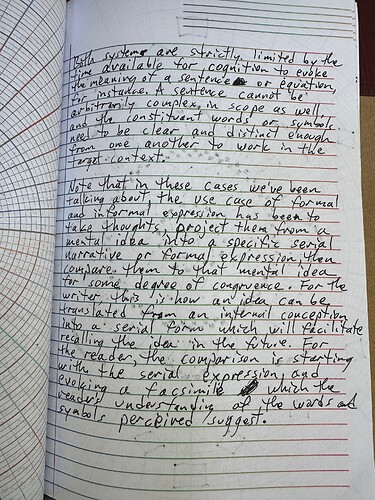 Both systems are strictly limited by the
time available for cognition to evoke
the meaning of a sentence or equation,
for instance. A sentence cannot be
arbitrarily complex, in scope as well,
and the constituant words or symbols
need to be clear and distinct enough
from one another to work in the
target context.
Note that in these cases we've been
talking about, the use case of formal
and informal expression has been to
take thoughts, project them from a
mental idea into a specific serial
narrative or formal expression, then
compare them to that mental idea
for some degree of congruence. For the
writer, this is how an idea can be
translated from an internal conception
into a serial form which will facilitate
recalling the idea in the future. For
the reader, the comparison is starting
with the serial expression and
evoking a facsimile which the
reader's understanding of the words and
symbols perceived suggest.